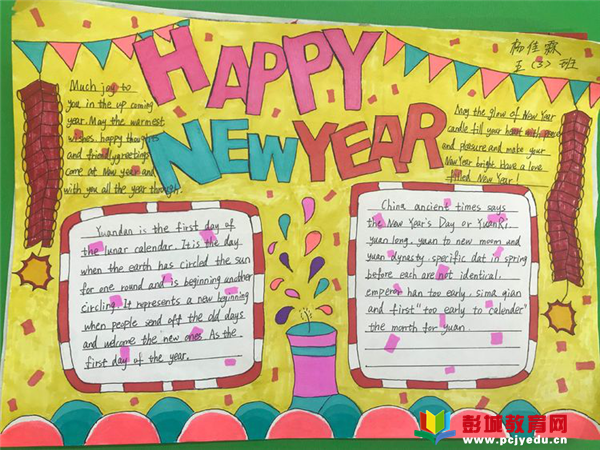 HAPPY
NEW YEAR
杨佳霖
五(3)班
Much joy to
you in the up coming
year. May the warmest
wishes, happy thoughts
and friendly greetings
come at New year and
with you all the year through.
May the glow of New Year
candle fill your heart with peace
and pleasure and make your
New Year bright. Have a love
filled New Year!
Yuandan is the first day of
the lunar calendar. It is the day
when the earth has circled the sun
for one round and is beginning another
circling. It represents a new beginning
when people send off the old days
and welcome the new ones. As the
first day of the year.
China ancient times says
the New Year's Day or Yuan Ri,
yuan long. yuan to new morm and
yuan dynasty specific dat in spring
before each are not identical.
emperor han too early. sima qian
and first "too early to calender"
the month for yuan
彭城教育网
www.pcjyedu.cn